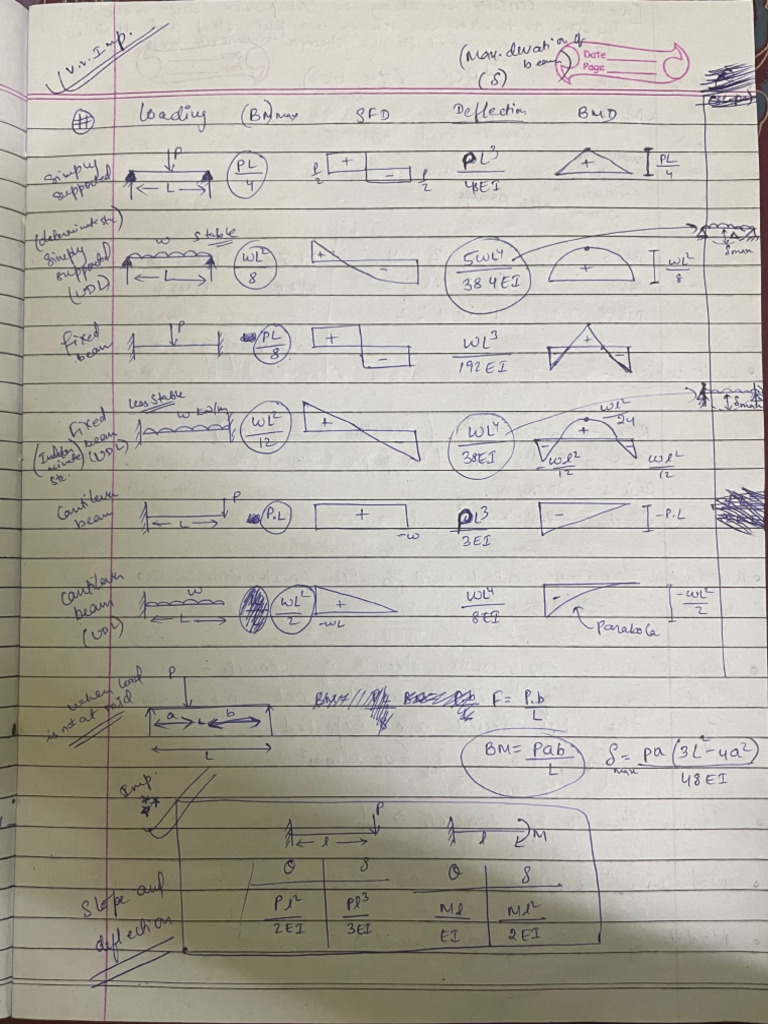 V.V. Imp.
(Max. deviation of beam)
(δ)
Date
Page
# Loading (BM)max SFD Deflection BMD
Simply supported P L PL/4 + - P/2 P/2 PL³/48EI + PL/4
(determinate str.) Simply supported (UDL) w stable L wL²/8 + 5wL⁴/384EI + wL²/8 δmax
Fixed beam P PL/8 + - wL³/192EI + - -
Fixed beam (UDL) less stable w kN/m wL²/12 + - wL⁴/38EI + wl²/24 wl²/12 wl²/12 δmax
Cantilever beam P L P.L + -w PL³/3EI - -P.L
Cantilever beam (UDL) w L wL²/2 + -wL wL⁴/8EI - Parabola -wL²/2
when load is not at mid P a b L F = P.b/L
BM = Pab/L δmax = pa(3L²-4a²)/48EI
Imp.
P l l M
θ δ θ δ
Slope and deflection Pl²/2EI Pl³/3EI Ml/EI Ml²/2EI